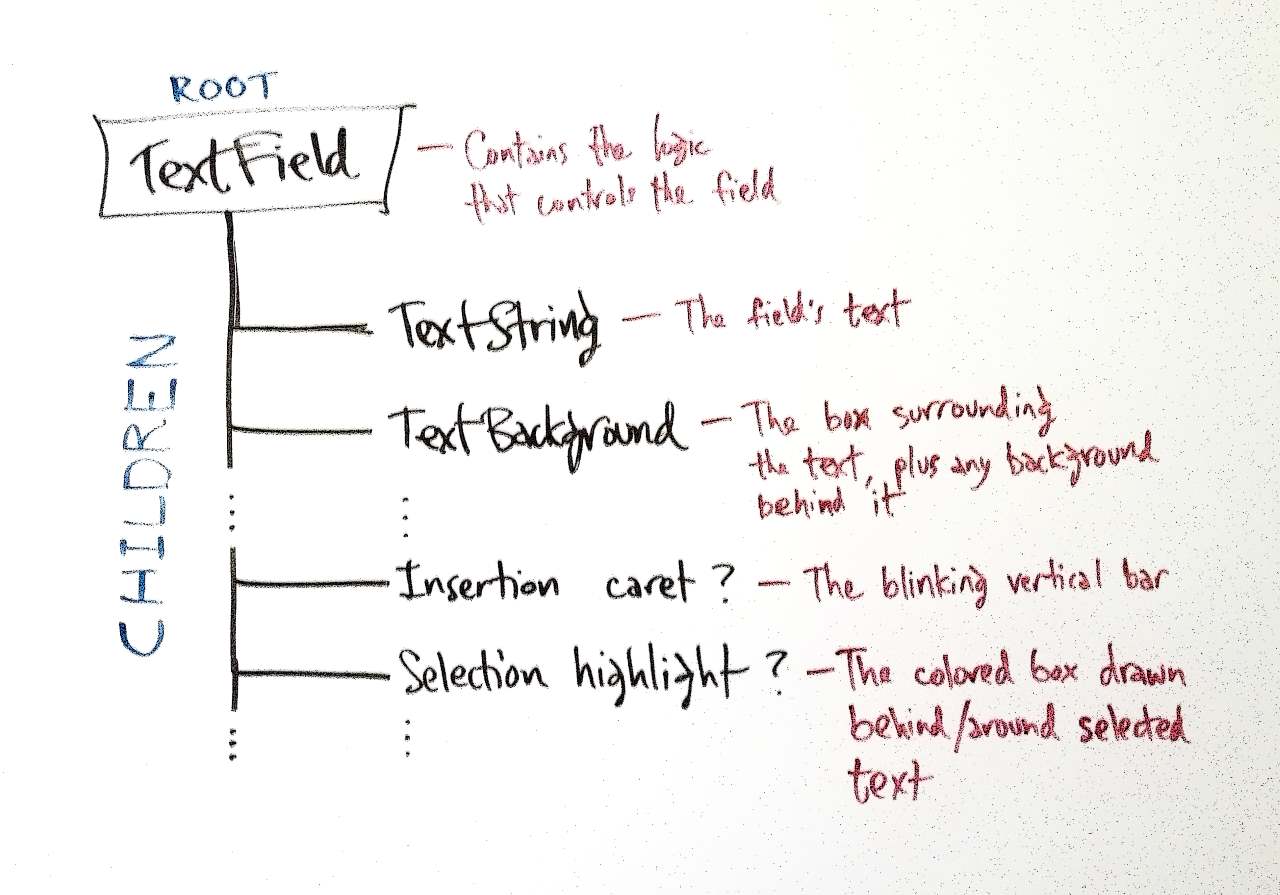 ROOT
TextField — Contains the logic
that controls the field
CHILDREN
TextString — The field's text
TextBackground — The box surrounding
the text, plus any background
behind it
Insertion caret? — The blinking vertical bar
Selection highlight? — The colored box drawn
behind/around selected
text